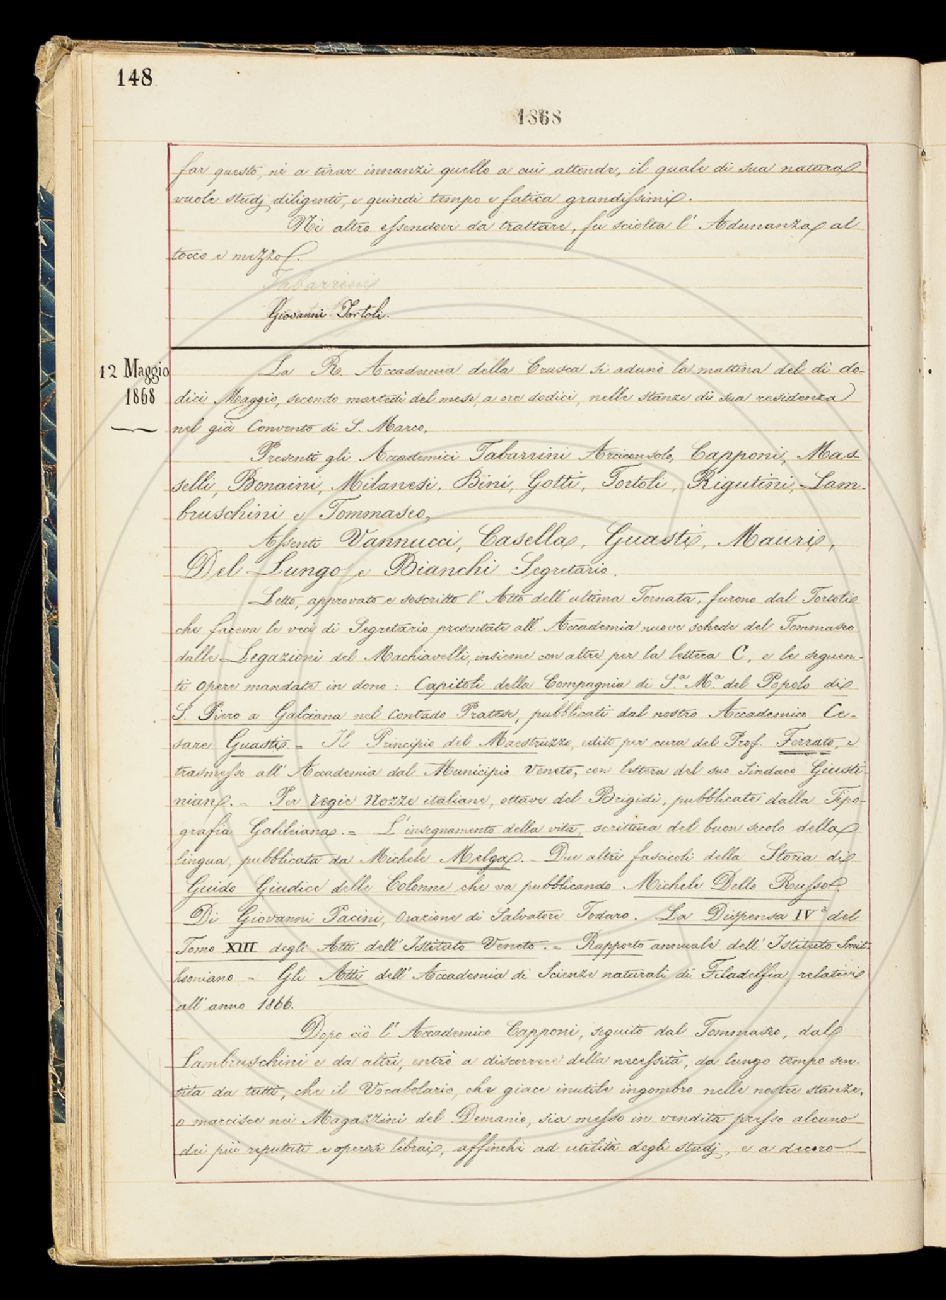 148
1868
far questo, nè a tirar innanzi quello a cui attende, il quale di sua natura
vuole studj diligenti, e quindi tempo e fatica grandissimi.
Nè altro essendovi da trattare, fu sciolta l' Adunanza al
tocco e mezzo.
Tabarrini
Giovanni Tortoli.
12 Maggio
1868
La R. Accademia della Crusca si adunò la mattina del dì do-
dici Maggio, secondo martedì del mese, a ore dodici, nelle stanze di sua residenza
nel già Convento di S. Marco.
Presenti gli Accademici Tabarrini Arciconsolo, Capponi, Mas-
selli, Bonaini, Milanesi, Bini, Gotti, Tortoli, Rigutini, Lam-
bruschini e Tommaseo,
Assenti Vannucci, Casella, Guasti, Mauri,
Del Lungo, e Bianchi Segretario.
Letto, approvato e soscritto l' Atto dell' ultima Tornata, furono dal Tortoli
che faceva le veci di Segretario presentate all' Accademia nuove schede del Tommaseo
dalle Legazioni del Machiavelli, insieme con altre per la lettera C, e le seguen-
ti opere mandate in dono: Capitoli della Compagnia di S.ª M.ª del Popolo di
S. Piero a Galciana nel Contado Pratese, pubblicati dal nostro Accademico Ce-
sare Guasti. = Il Principio del Maestruzzo, edito per cura del Prof. Ferrato, e
trasmesso all' Accademia dal Municipio Veneto, con lettera del suo Sindaco Giusti-
nian. - Per regie Nozze italiane, ottave del Brigidi, pubblicate dalla Tipo-
grafia Galileiana. = L'insegnamento della vita, scrittura del buon secolo della
lingua, pubblicata da Michele Melga. - Due altri fascicoli della Storia di
Guido Giudice delle Colonne che va pubblicando Michele Dello Russo.
Di Giovanni Pacini, Orazione di Salvatore Todaro. La Dispensa IVª del
Tomo XIII degli Atti dell' Istituto Veneto. = Rapporto annuale dell' Istituto Smit-
hsoniano - Gli Atti dell' Accademia di Scienze naturali di Filadelfia, relativi
all' anno 1866.
Dopo ciò l' Accademico Capponi, seguito dal Tommaseo, dal
Lambruschini e da altri, entrò a discorrere della necessità, da lungo tempo sen-
tita da tutti, che il Vocabolario, che giace inutile ingombro nelle nostre stanze,
o marcisce nei Magazzini del Demanio, sia messo in vendita presso alcuno
dei più reputati e operosi librai, affinchè ad utilità degli studj, e a decoro